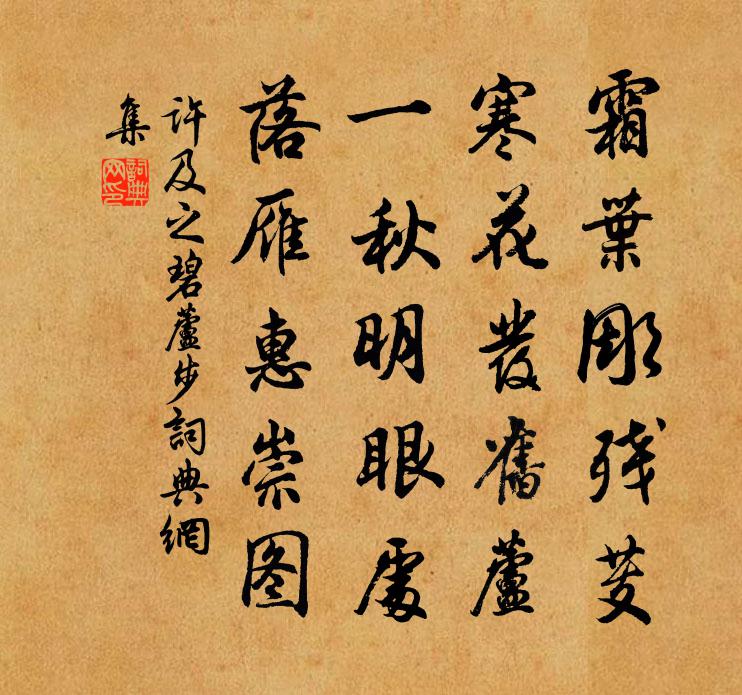 霜葉彫残芰
寒花發舊蘆
一秋明眼處
落雁惠崇图
許及之碧蘆步詞典網
集
詞典
网印